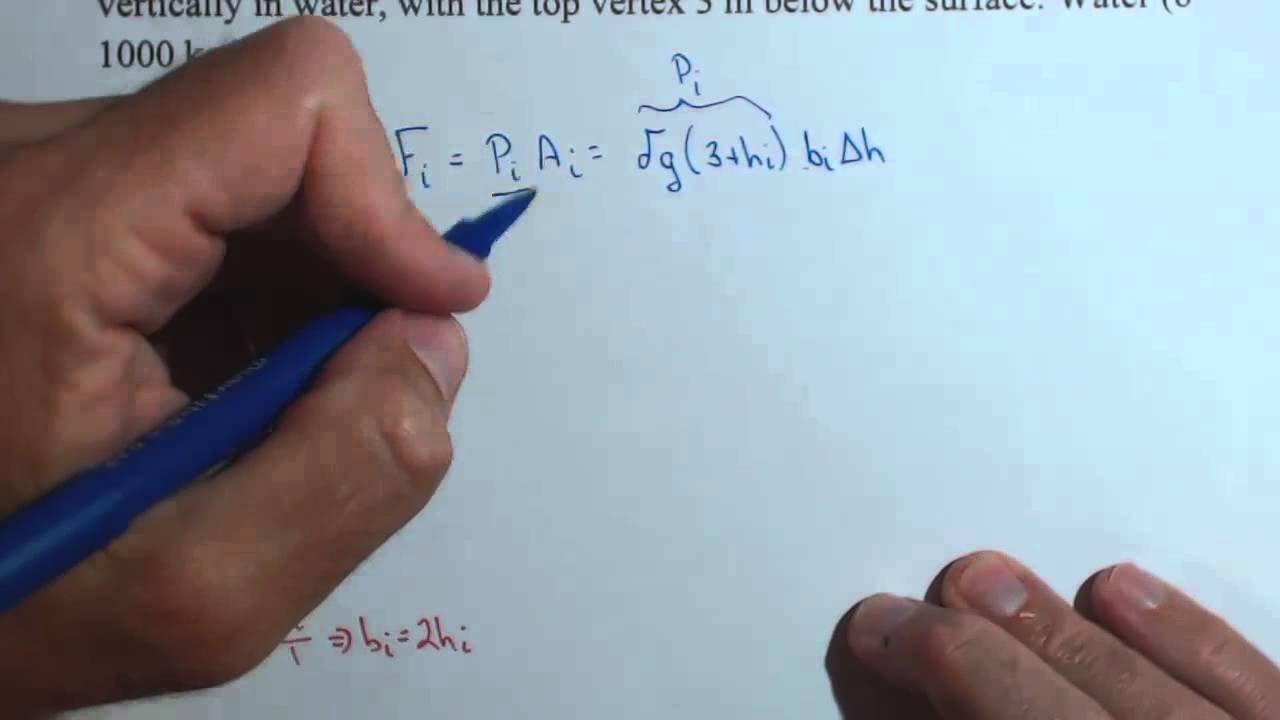 vertically in water, with the top vertex 3 m below the surface. Water (δ
1000
P_i
F_i = P_i A_i = δg(3+h_i) b_i Δh
⇒ b_i = 2h_i